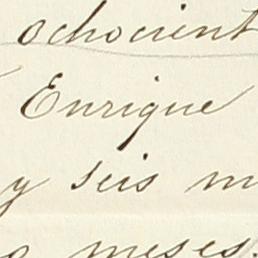 ochocient
Enrique
y seis m
o meses.